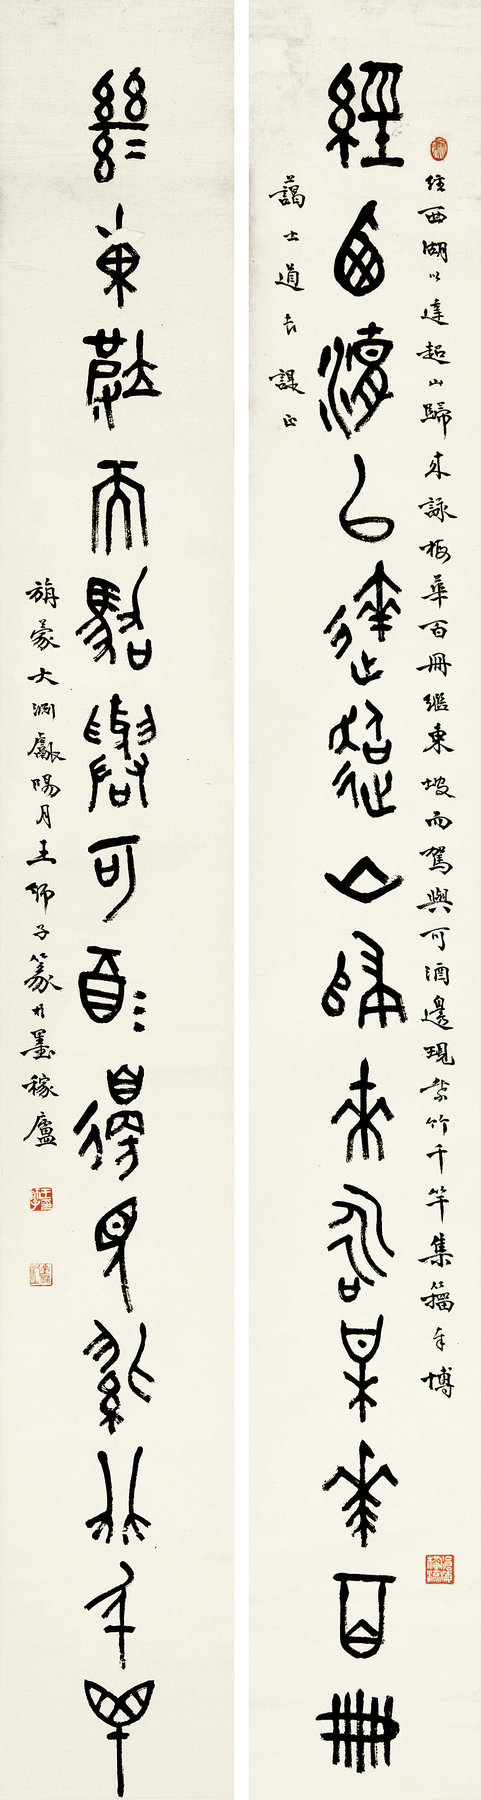 經西湖以達超山歸來詠梅華百冊繼東坡而駕與可酒邊現紫竹千竿集籀奉博
經西湖以達超山歸來詠梅華百冊
藹士道長諟正
繼東坡而駕與可酒邊現紫竹千竿
旃蒙大淵獻陽月王師子篆於墨稼廬